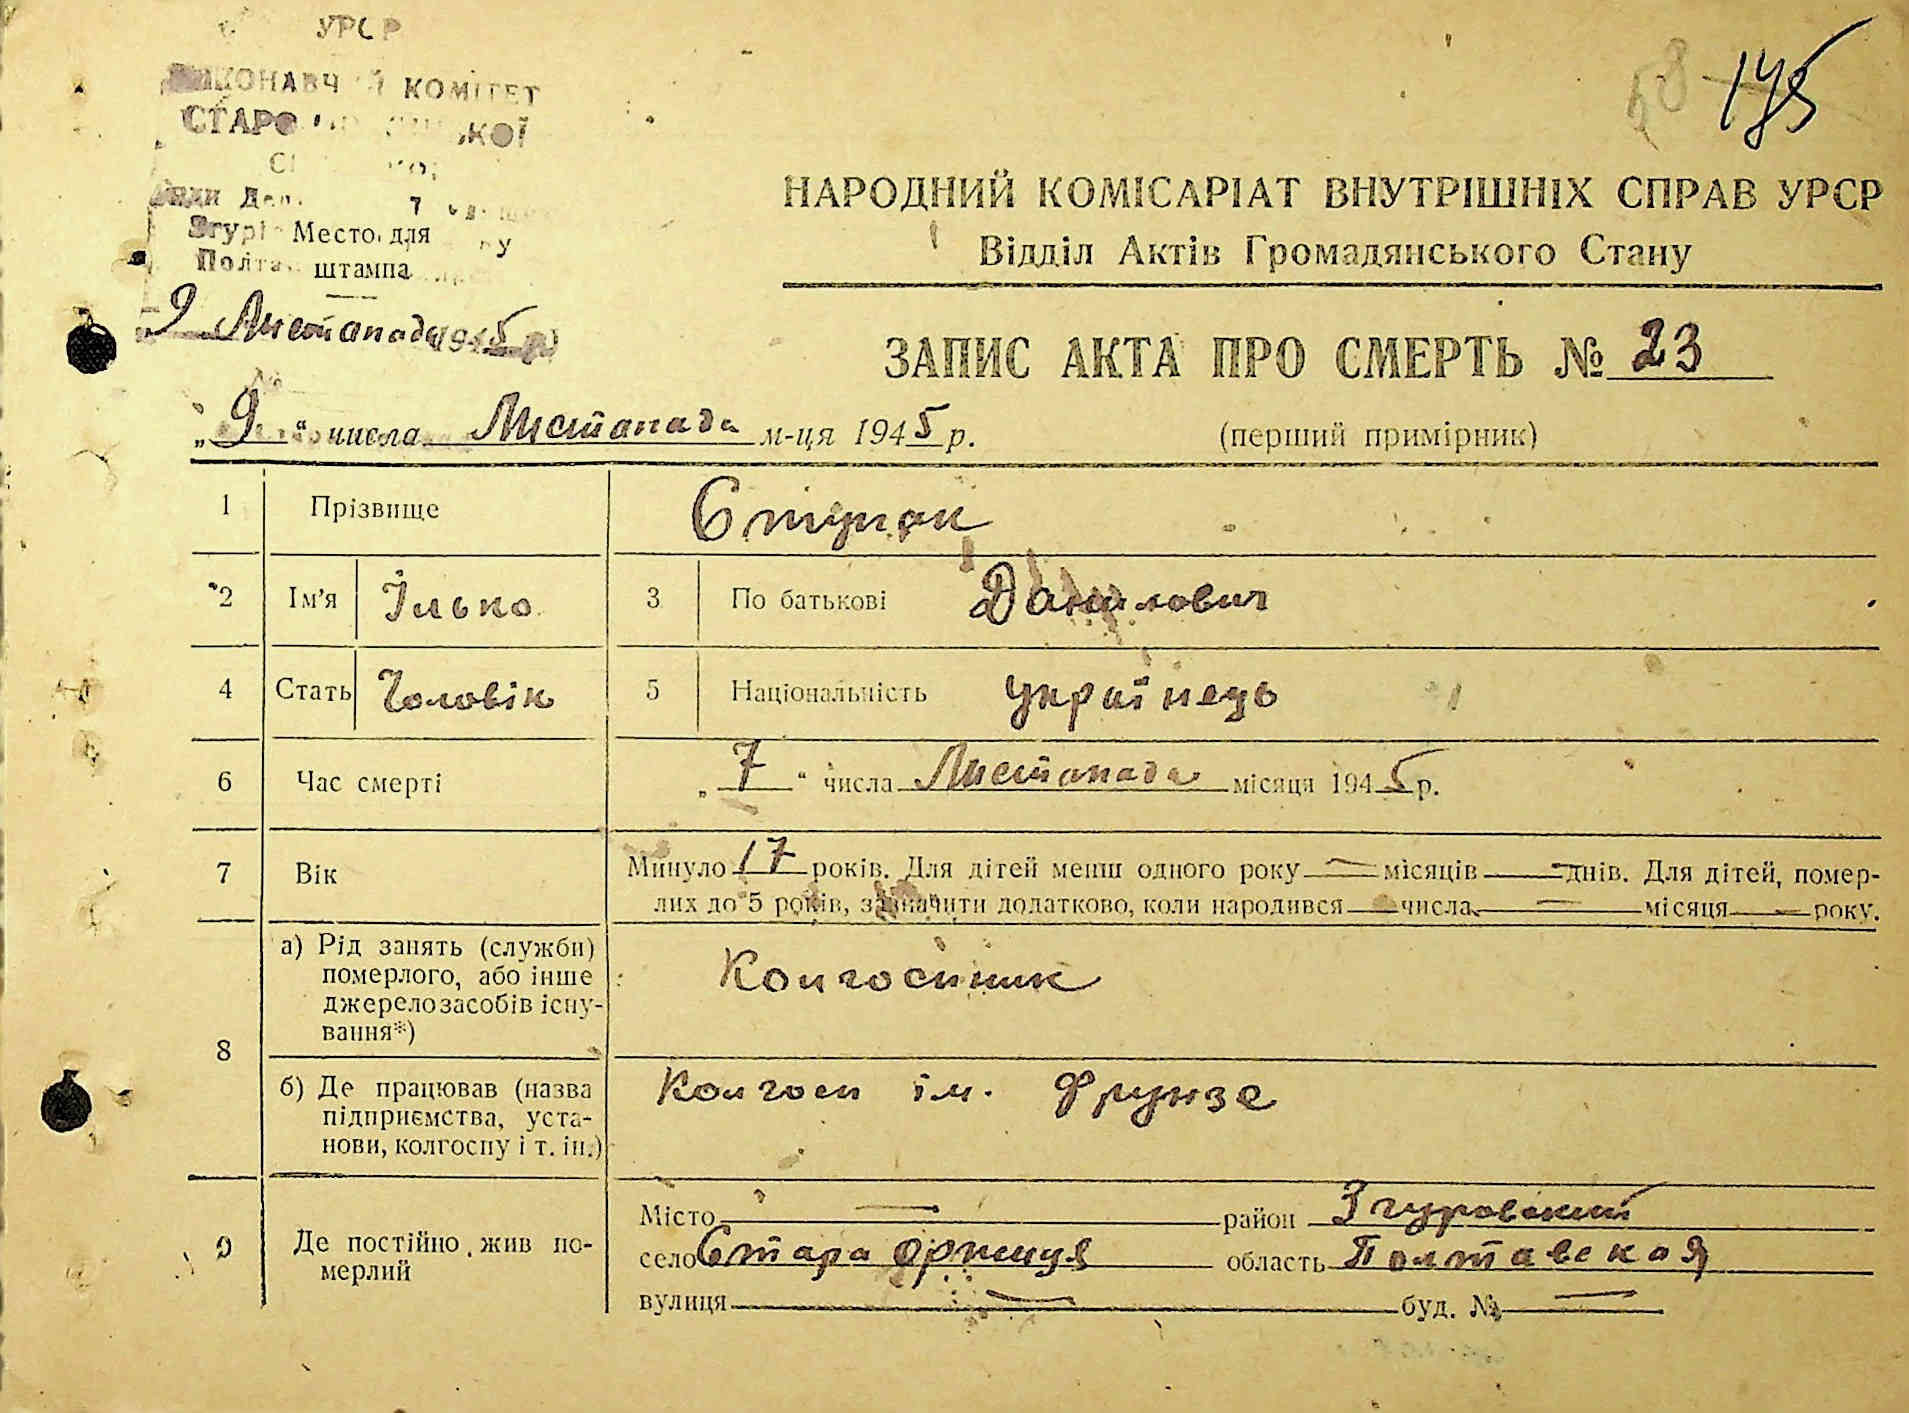 УРСР
ВИКОНАВЧИЙ КОМІТЕТ
175
НАРОДНИЙ КОМІСАРІАТ ВНУТРІШНІХ СПРАВ УРСР
Відділ Актів Громадянського Стану
Место для
штампа
9 Листопада 1945 р
ЗАПИС АКТА ПРО СМЕРТЬ № 23
„9" числа Листопада м-ця 1945 р.
(перший примірник)
1 Прізвище Ступак
2 Ім'я Ілько 3 По батькові Данилович
4 Стать Чоловік 5 Національність Українець
6 Час смерті „7" числа Листопада місяця 1945 р.
7 Вік Минуло 17 років. Для дітей менш одного року — місяців — днів. Для дітей, помер-
лих до 5 років, зазначити додатково, коли народився — числа — місяця — року.
8 а) Рід занять (служби)
померлого, або інше
джерело засобів існу-
вання*)
Колгоспник
б) Де працював (назва
підприємства, уста-
нови, колгоспу і т. ін.)
Колгосп ім. Фрунзе
9 Де постійно жив по-
мерлий
Місто — район Згуровский
село Стара Оржиця область Полтавская
вулиця — буд. № —